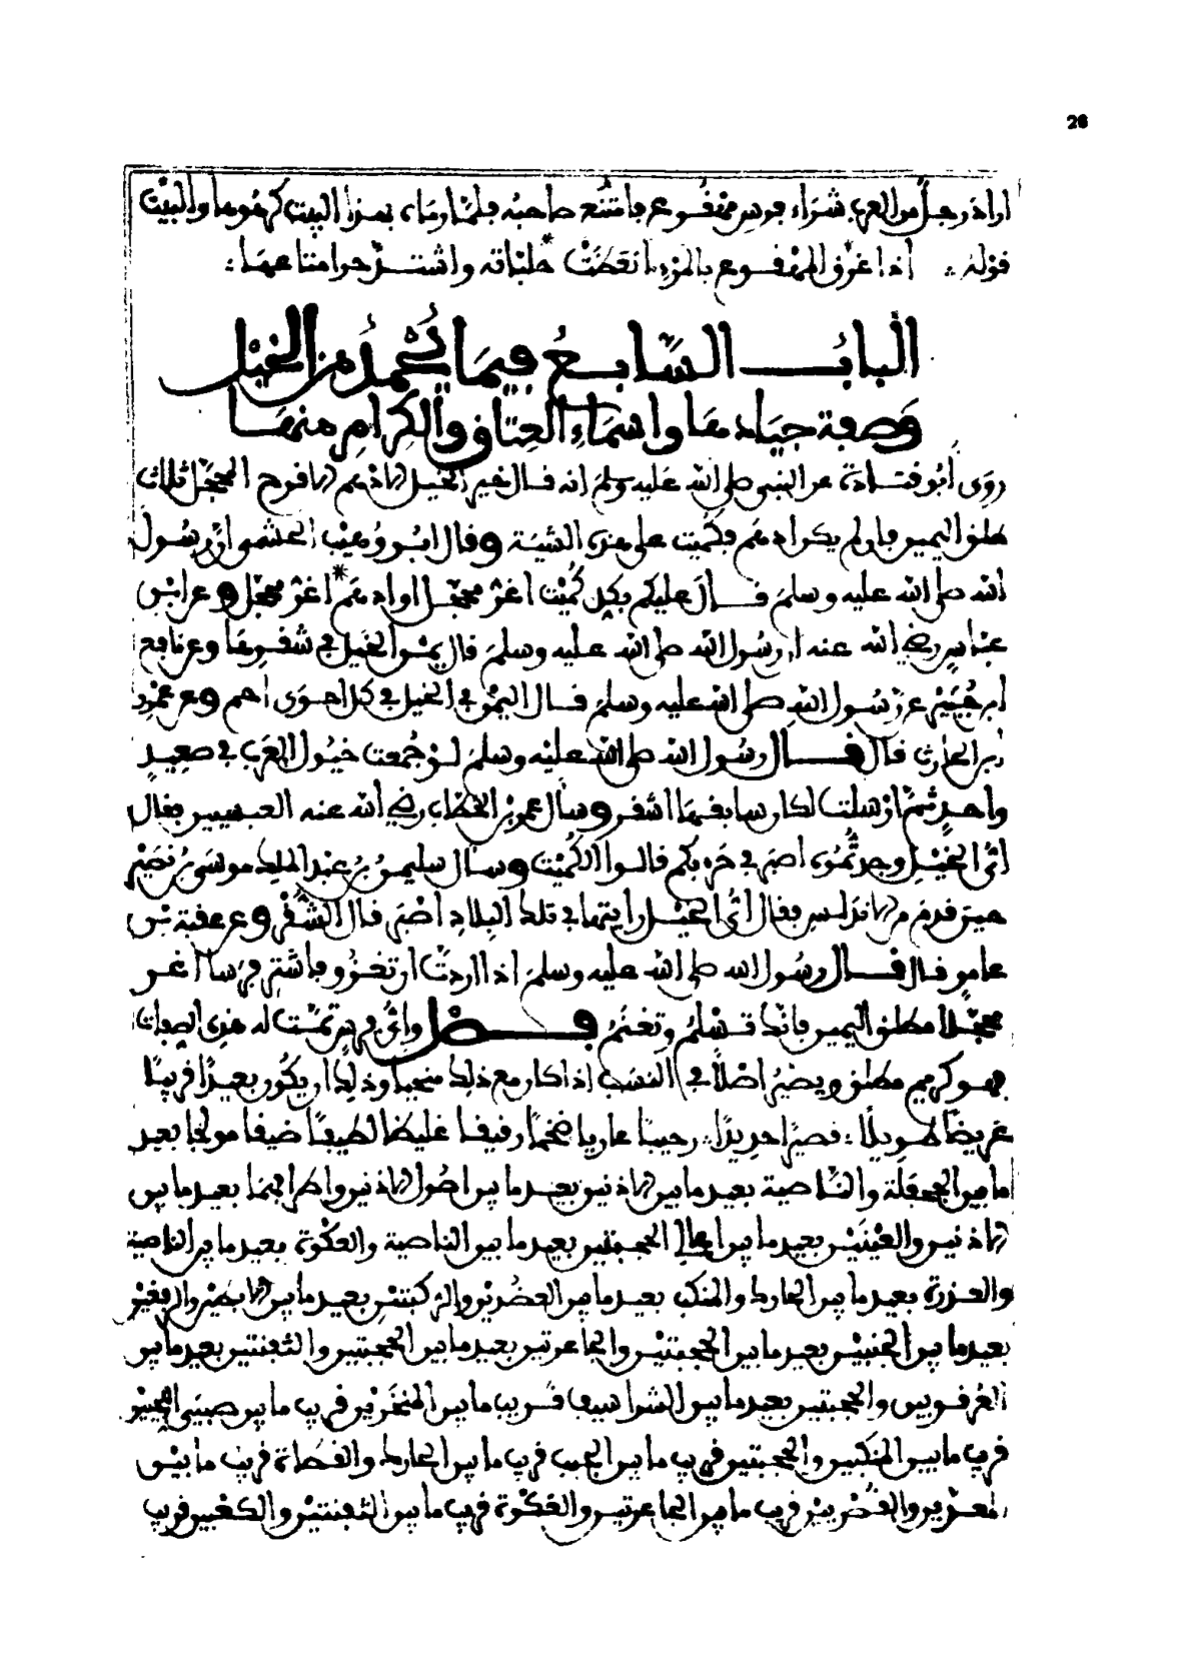 26
اراد رجل من العرب شراء فرس مهقوع فامتنع صاحبه فلما رماه بهذا البيت كرهوها والبيت
قوله : اذا عرق المهقوع بالمرء انعظت * حليلته واشتد حرا متاعها :
الباب السابع فيما يحمد من الخيل
وصفة جيادها واسماء العتاق والكرام منها
روى أبو قتادة عن النبي صلى الله عليه وسلم انه قال خير الخيل الادهم الاقرح المحجل ثلاث
طلق اليمين فان لم يكن ادهم فكميت على هذه الشية وقال ابو وهيب الجشمي ان رسول
الله صلى الله عليه وسلم قال عليكم بكل كميت اغر محجل او ادهم * اغر محجل وعن ابن
عباس رضي الله عنه ان رسول الله صلى الله عليه وسلم قال يمن الخيل في شقرها وعن نافع
ابن جبير عن رسول الله صلى الله عليه وسلم قال اليمن في الخيل في كل احوى احم وعن عمرو
ابن الحارث قال قال رسول الله صلى الله عليه وسلم لو جمعت خيول العرب في صعيد
واحد ثم ارسلت لكان سابقها اشقر وسأل عمر بن الخطاب رضي الله عنه العبسيين فقال
أي الخيل وجدتموه اصبر في حربكم قالوا الكميت وسأل سليمن بن عبد الملك موسى بن نصير
حين قدم من الاندلس فقال أي الخيل رأيتها في تلك البلاد اصبر قال الشقر وعن عقبة بن
عامر قال قال رسول الله صلى الله عليه وسلم اذا اردت ان تغزو فاشتر فرسا اغر
محجلا مطلق اليمين فانك تسلم وتغنم فصل وأي فرس تمت له هذه الصفات
فهو كريم مطلق ويصير اصلا في النسب اذا كان مع ذلك منجبا وذلك ان يكون بعيدا قريبا
عريضا طويلا : قصيرا حديدا : رحيبا عاريا ضخما رقيقا غليظا لطيفا ضيقا مولجا بعيد
ما بين الجحفلة والناصية بعيد ما بين الاذنين بعيد ما بين اصول الاذنين واطرافهما بعيد ما بين
الاذنين والعينين بعيد ما بين اعالي الحجبتين بعيد ما بين الناصية والعكوة بعيد ما بين الناصية
والعذرة بعيد ما بين الحارك والمنكب بعيد ما بين العضدين والركبتين بعيد ما بين الابطين والرفغين
بعيد ما بين الجنبين بعيد ما بين الحجبتين والجاعرتين بعيد ما بين الحجبتين والثفنتين بعيد ما بين
العرقوبين والحجبتين بعيد ما بين الشراسيف قريب ما بين المنخرين قريب ما بين صبيي اللحيين
قريب ما بين المنكبين والحجبتين قريب ما بين الجبب قريب ما بين الحارك والقطاة قريب ما بين
المعدين والقصريين قريب ما بين الجاعرتين والعكوة قريب ما بين الثفنتين والكعبين قريب